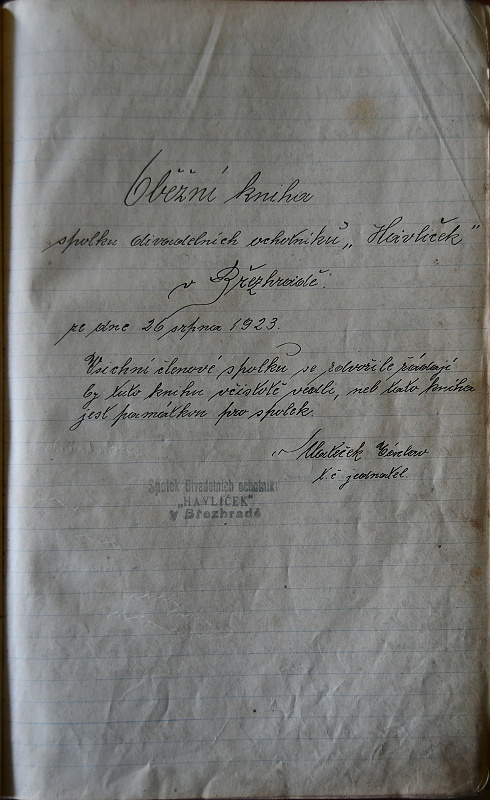 Oběžní kniha
spolku divadelních ochotníků „Havlíček"
v Březhradě.
ze dne 26 srpna 1923.
Všichni členové spolku se zdvořile žádají
by tuto knihu včistotě vedli, neb tato kniha
jest památkou pro spolek.
Matěček
t.č jednatel.
Spolek Divadelních ochotníků
„HAVLÍČEK"
v Březhradě